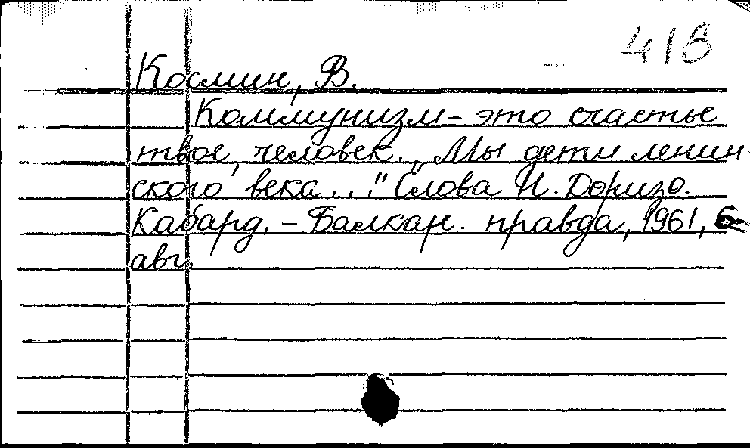 418
Космин, В.
Коммунизм - это счастье
твое, человек. „Мы дети ленин-
ского века..." Слова Н. Доризо.
Кабард. - Балкар. правда, 1961, 6
авг.